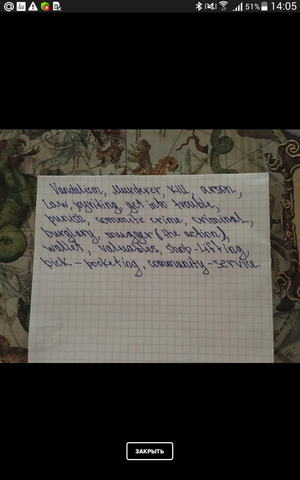 51% 14:05
Vandalism, Murderer, kill, arson,
Law, get into trouble,
punish, commite crime, criminal,
burglary, (the action),
wallet, valuables, shop-lifting,
pick-pocketing, community-service
ЗАКРЫТЬ